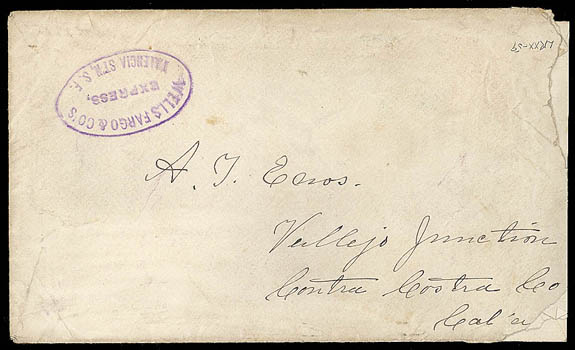 WELLS FARGO & CO'S
EXPRESS,
VALENCIA STN, S. F.
A. J. Enos.
Vallejo Junction
Contra Costra Co
Cal'a